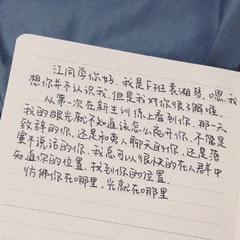 江同学你好,我是F班袁湘琴,嗯,我
想你并不认识我,但是我对你很了解喔.
从第一次在新生训练上看到你,那一天
我的眼光就不知道该怎么离开你,不管是
致辞的你,还是和旁人聊天的你,还是落
寞不说话的你,我总可以很快的在人群中
知道你的位置,找到你的位置.
仿佛你在哪里,光就在哪里